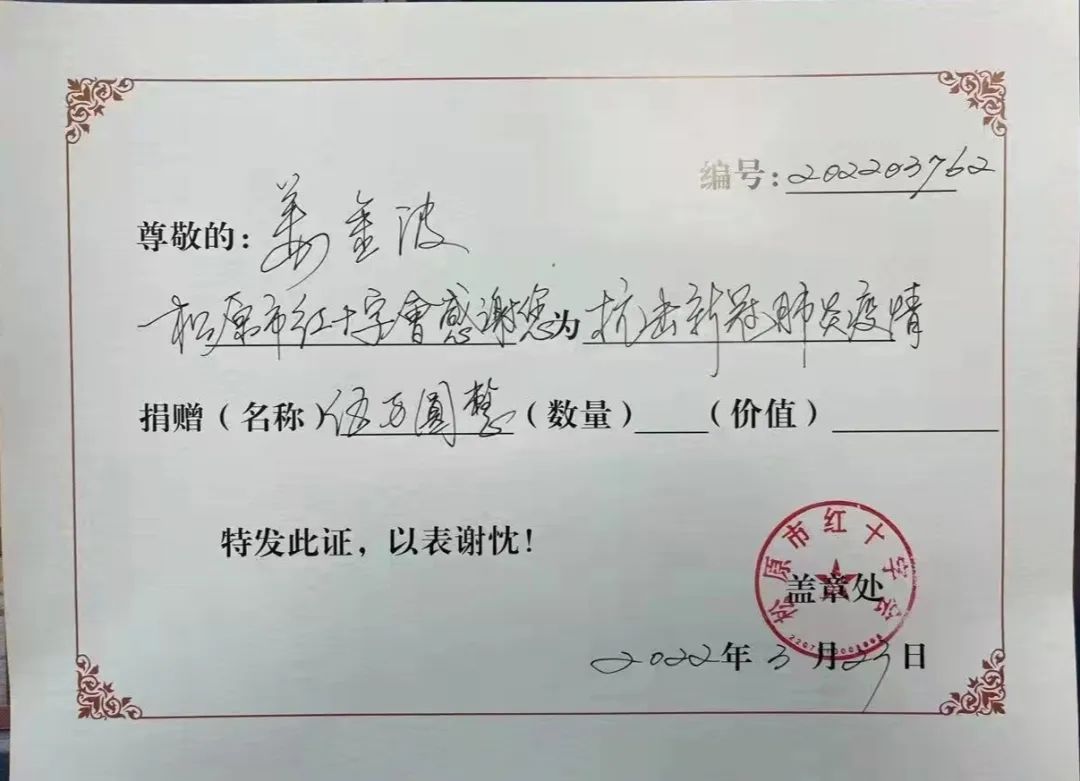 编号:202203762
尊敬的:姜金波
松原市红十字會感谢您为抗击新冠肺炎疫情
捐赠(名称)伍万圆整(数量)(价值)
特发此证,以表谢忱!
松原市红十字会
盖章处
2022年3月23日